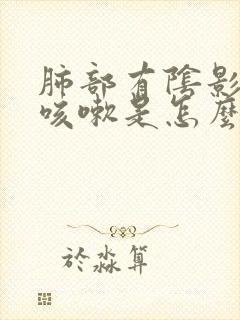 肺部有陰影
咳嗽是怎麼
於淼算